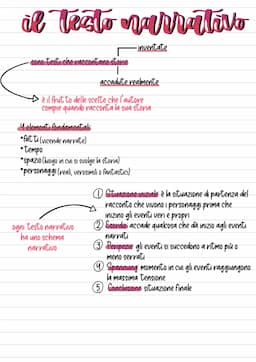 il testo narrativo
inventate
sono testi che raccontano storie
accadute realmente
è il frutto delle scelte che l'autore
compie quando racconta la sua storia
4 elementi fondamentali:
•fatti (vicende narrate)
•tempo
•spazio (luogo in cui si svolge la storia)
•personaggi (reali, verosimili o fantastici)
ogni testo narrativo
ha uno schema
narrativo
1 Situazione iniziale è la situazione di partenza del
racconto che vivono i personaggi prima che
inizino gli eventi veri e propri
2 Esordio accade qualcosa che dà inizio agli eventi
narrati
3 Peripezie gli eventi si succedono a ritmo più o
meno serrati
4 Spannung momento in cui gli eventi raggiungono
la massima tensione
5 Conclusione situazione finale